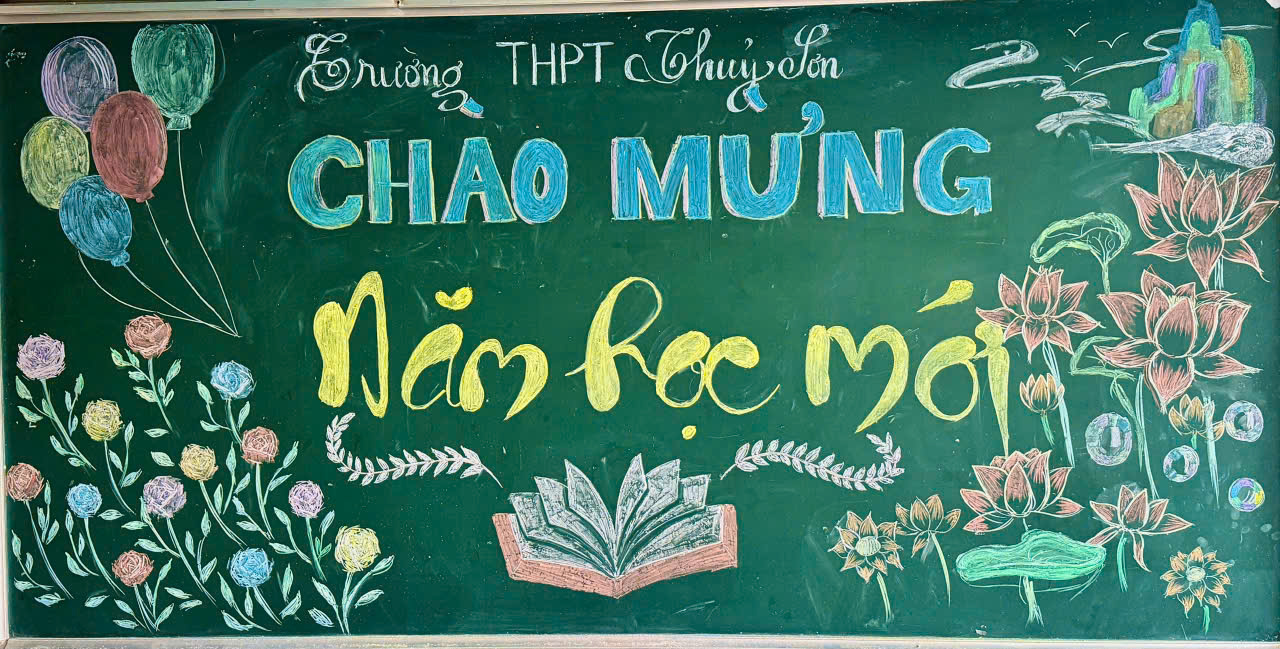 Trường THPT Thuỷ Sơn
CHÀO MỪNG
Năm học mới